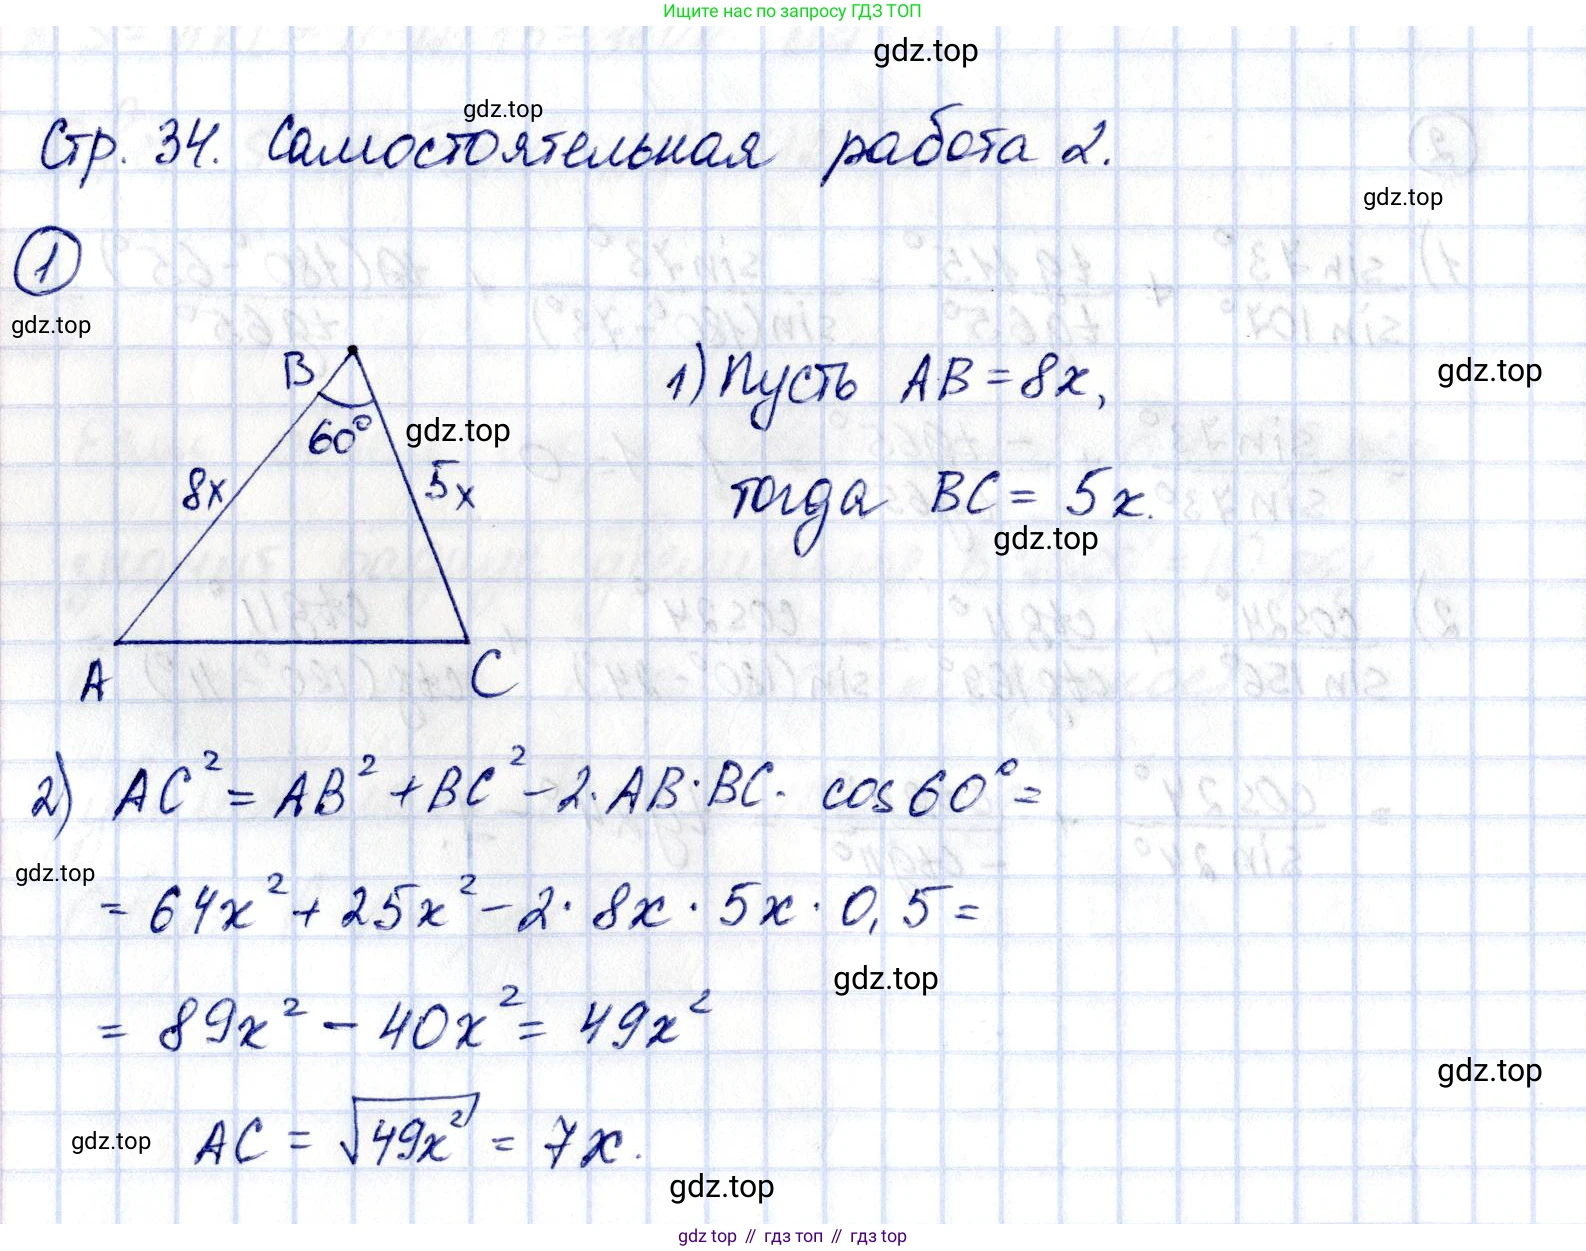 Ищите нас по запросу ГДЗ ТОП
gdz.top
gdz.top
Стр. 34. Самостоятельная работа 2.
gdz.top
1
gdz.top
B
60°
gdz.top
8x
5x
A
C
1) Пусть AB = 8x,
gdz.top
тогда BC = 5x.
gdz.top
2) AC² = AB² + BC² - 2 · AB · BC · cos 60° =
gdz.top
= 64x² + 25x² - 2 · 8x · 5x · 0,5 =
gdz.top
= 89x² - 40x² = 49x²
gdz.top
gdz.top
AC = √49x² = 7x.
gdz.top
gdz top // гдз топ // гдз top